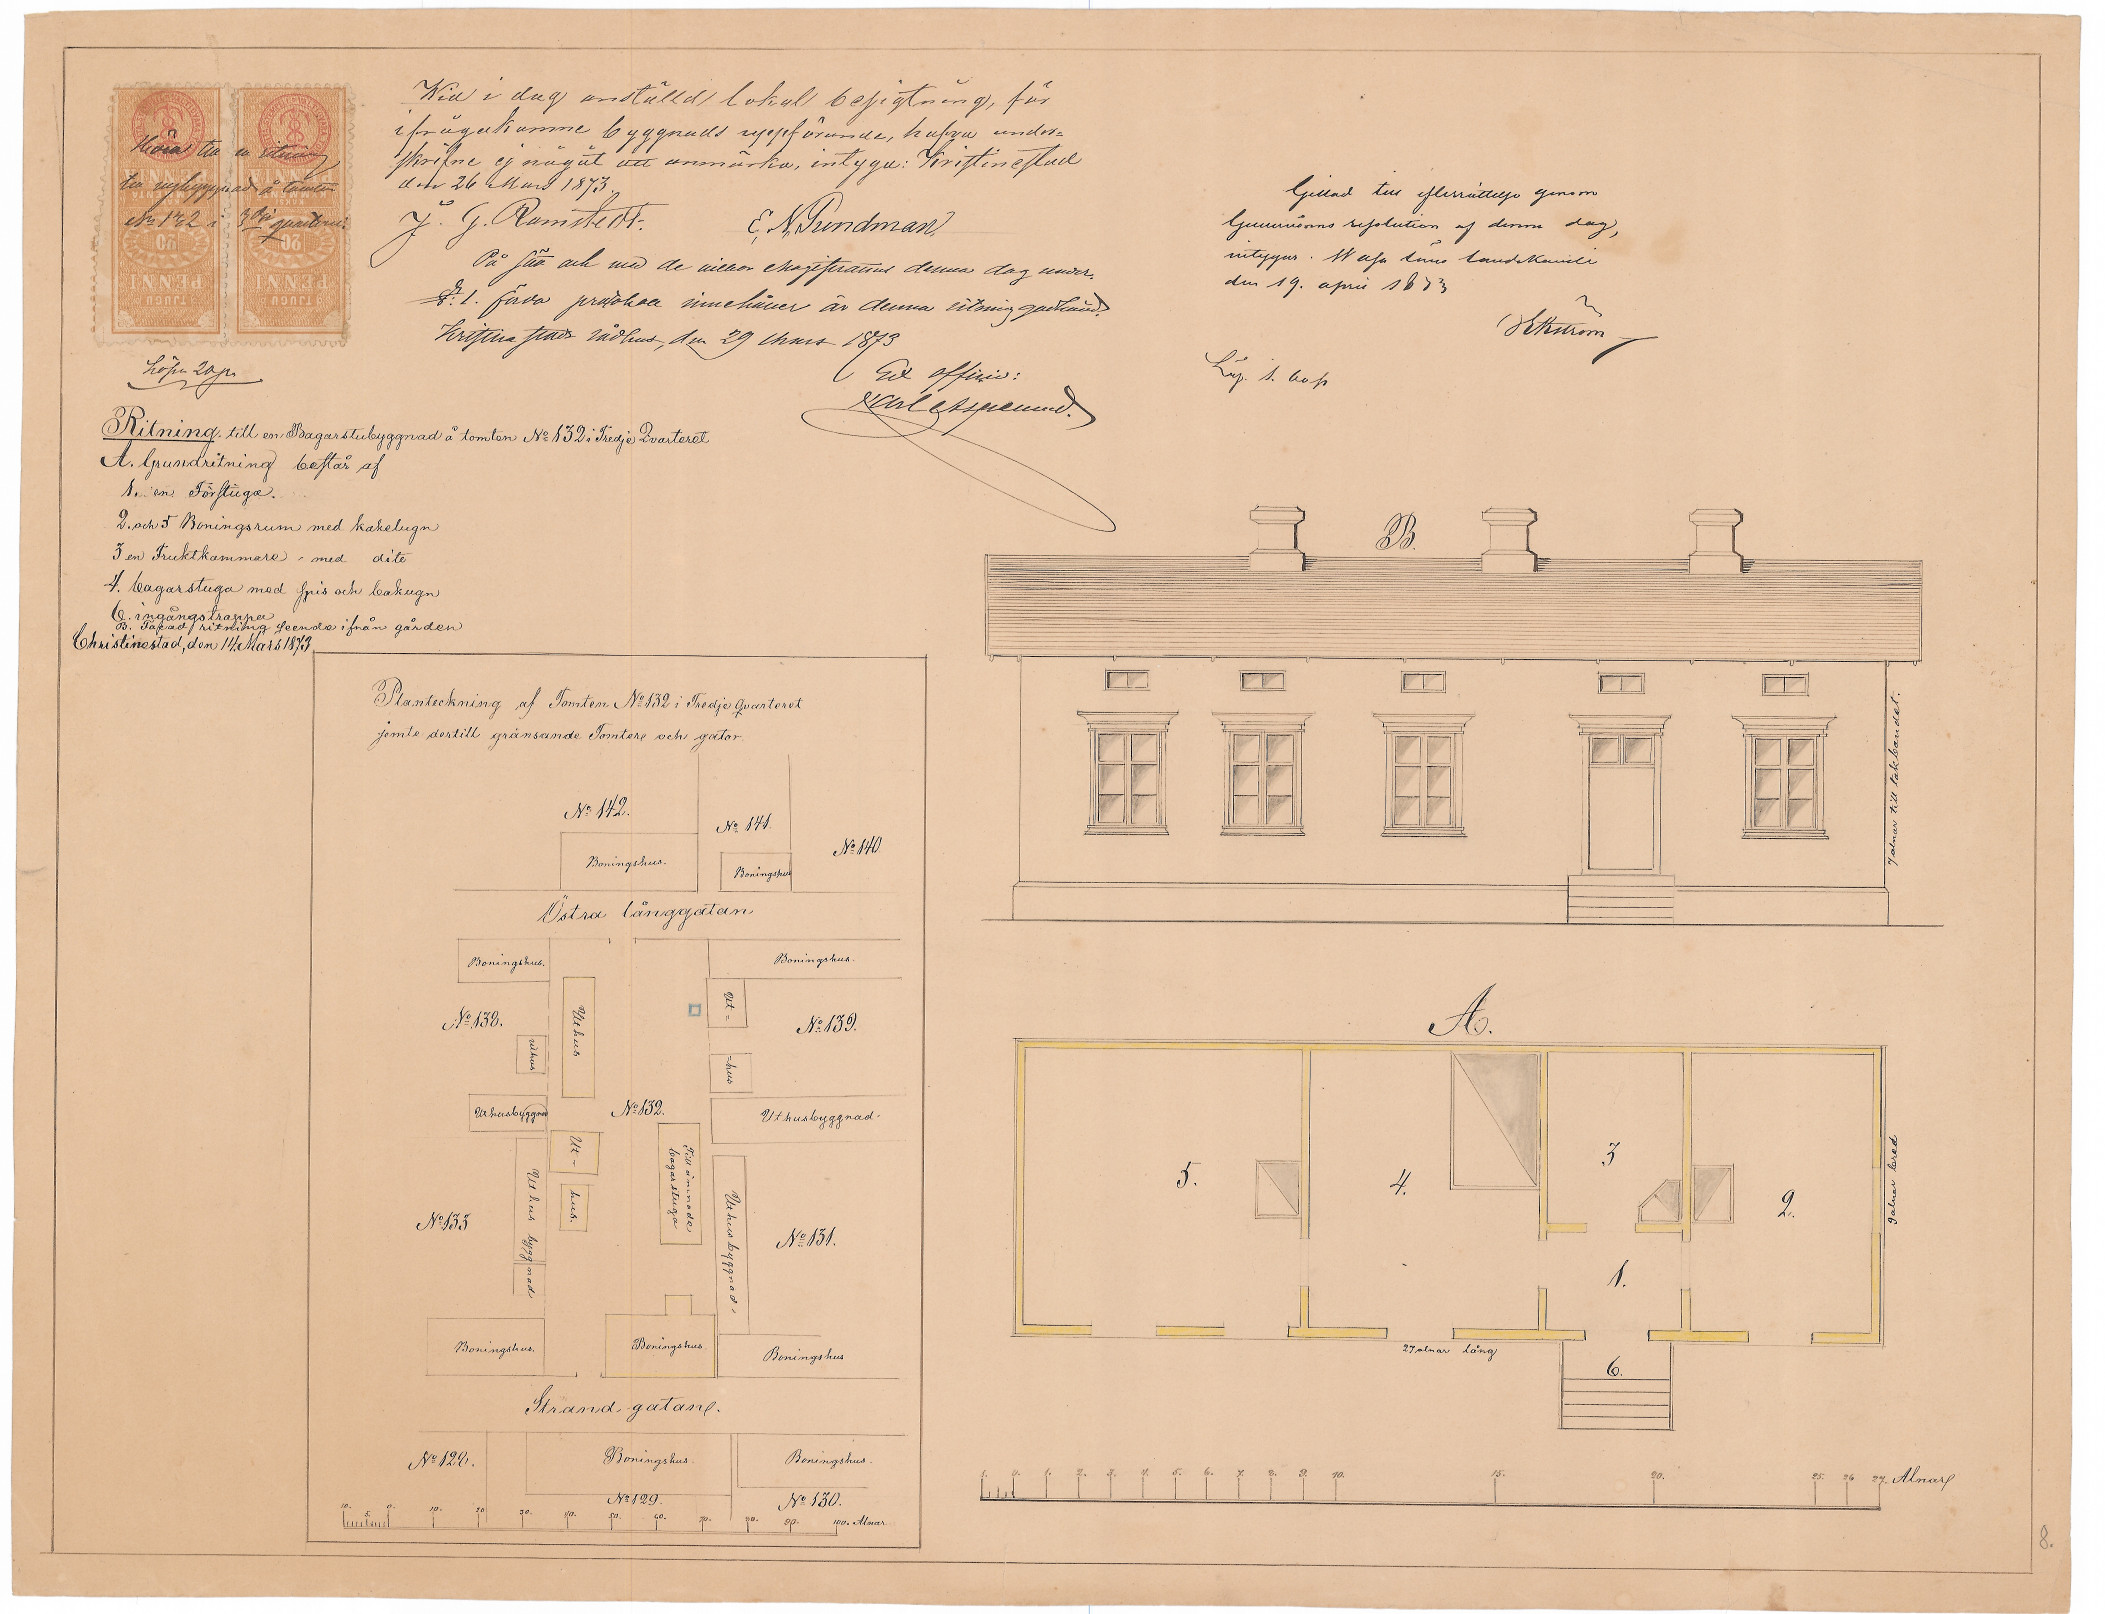 Höra till en ritning
till nybyggnad å tomten
No 132 i 3dje quarteret.
TJUGU PENNI
20
TJUGU PENNI
20
Lösen 20 p.
Wid i dag anställd lokal besigtning, för
ifrågakomne byggnads uppförande, hafva under-
skrifne ej något att anmärka, intyga: Kristinestad
den 26 Mars 1873.
J. G. Ramstedt.
E. N. Sundman
På sätt och med de vilkor Magistratens denna dag under
§: 1. förda protokoll innehåller är denna ritning godkänd.
Kristinestads rådhus, den 29 Mars 1873
Ex officio:
Gillad till efterrättelse genom
Guvernörens resolution af denna dag,
intygar. Wasa läns landskansli
den 19. april 1873
Ekström
Ritning till en Bagarstubyggnad å tomten No 132 i Tredje Qvarteret
A. Grundritning består af
1. en Förstuga.
2. och 5 Boningsrum med kakelugn
3 en Fruktkammare med dito
4. bagarstuga med spis och bakugn
6. ingångstrappa
B. Fasad ritning seende ifrån gården
Christinestad, den 14 Mars 1873
Planteckning af Tomten No 132 i Tredje Qvarteret
jemte dertill gränsande Tomter och gator.
No 142.
No 141.
No 140
Boningshus.
Boningshus
Östra långgatan
Boningshus.
Boningshus.
Uthus
Ut=
No 138.
No 139.
uthus
=hus
Uthusbyggnad
No 132.
Uthusbyggnad.
Ut-
hus.
Tillämnade
bagarstuga
Uthus byggnad
Uthusbyggnad.
No 133
No 131.
Boningshus.
Boningshus.
Boningshus
Strand gatan.
No 128.
Boningshus.
Boningshus.
No 129.
No 130.
10. 5. 0. 10. 20 30. 40. 50. 60. 70. 80. 90. 100. Alnar.
B.
7 alnar till takbandet.
A.
5.
4.
3
2.
1.
6.
9 alnar bred
27 alnar lång
1. 0. 1. 2. 3. 4. 5. 6. 7. 8. 9. 10. 15. 20. 25. 26 27. Alnar
8.